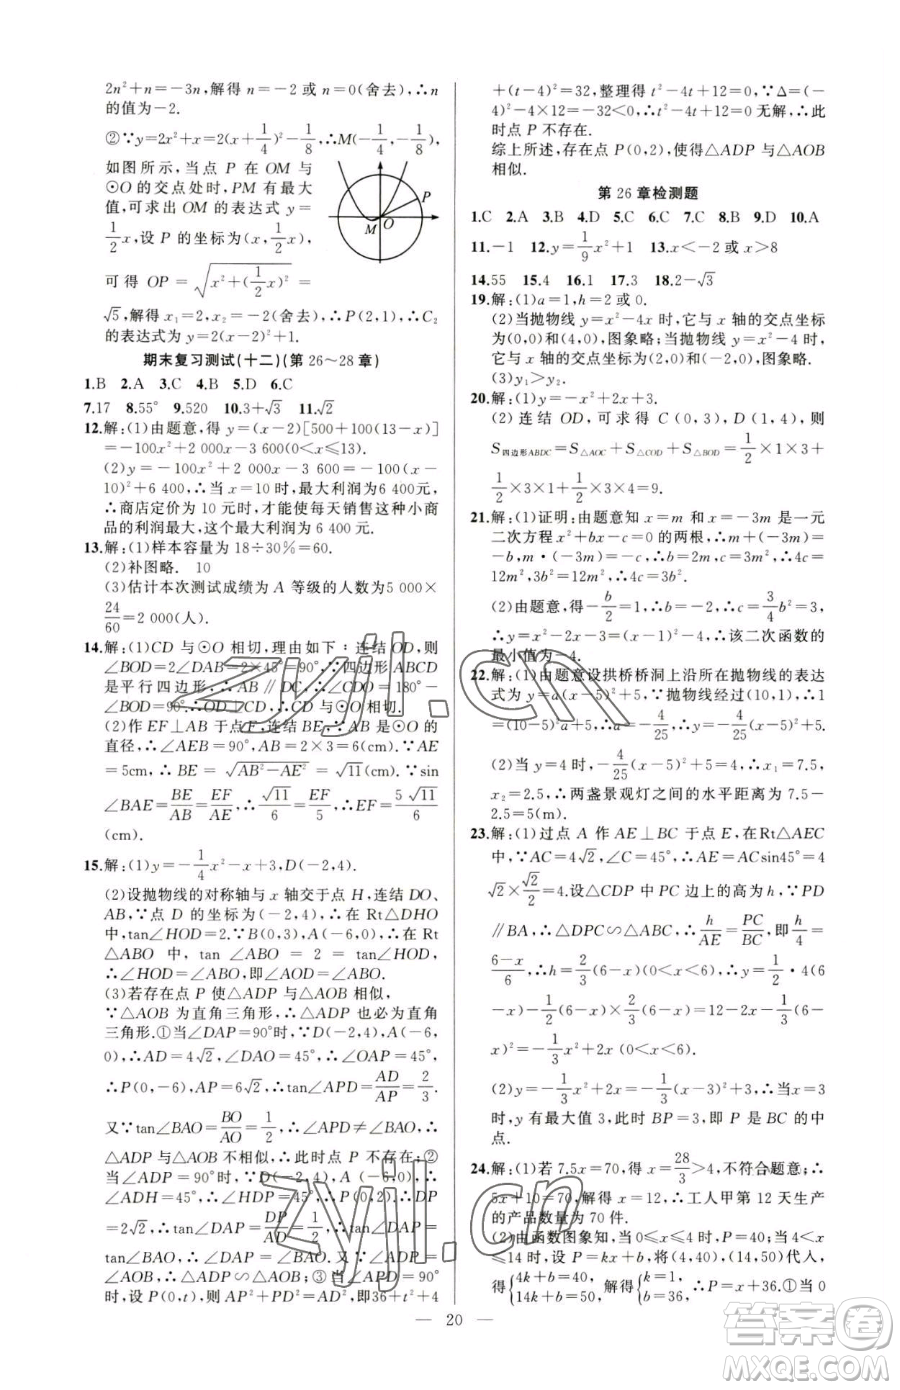 2n²+n=-3n,解得 n=-2 或 n=0(舍去),∴n
的值为-2.
②∵y=2x²+x=2(x+1/4)²-1/8,∴M(-1/4,-1/8),
如图所示,当点 P 在 OM 与
⊙O 的交点处时,PM 有最大
值,可求出 OM 的表达式 y=
1/2 x,设 P 的坐标为(x,1/2 x),
可得 OP=√(x²+(1/2 x)²)=
√5,解得 x₁=2,x₂=-2(舍去),∴P(2,1),∴C₂
的表达式为 y=2(x-2)²+1.
P
M O
期末复习测试(十二)(第 26~28 章)
1.B 2.A 3.C 4.B 5.D 6.C
7.17 8.55° 9.520 10.3+√3 11.√2
12.解:(1)由题意,得 y=(x-2)[500+100(13-x)]
=-100x²+2 000x-3 600(0<x≤13).
(2)y=-100x²+2 000x-3 600=-100(x-
10)²+6 400,当 x=10 时,最大利润为6 400元,
∴商店定价为 10 元时,才能使每天销售这种小商
品的利润最大,这个最大利润为6 400元.
13.解:(1)样本容量为 18÷30%=60.
(2)补图略. 10
(3)估计本次测试成绩为 A 等级的人数为5 000×
24/60=2 000(人).
14.解:(1)CD 与⊙O 相切,理由如下:连结 OD,则
∠BOD=2∠DAB=2×45°=90°,∵四边形 ABCD
是平行四边形,∴AB∥DC,∴∠CDO=180°-
∠BOD=90°,∴OD⊥CD,∴CD 与⊙O 相切.
(2)作 EF⊥AB 于点 F,连结 BE,∵AB 是⊙O 的
直径,∴∠AEB=90°,AB=2×3=6(cm).∵AE
=5cm,∴BE=√(AB²-AE²)=√11(cm).∵sin
∠BAE=BE/AB=EF/AE,∴√11/6=EF/5,∴EF=5√11/6
(cm).
15.解:(1)y=-1/4 x²-x+3,D(-2,4).
(2)设抛物线的对称轴与 x 轴交于点 H,连结 DO,
AB,∵点 D 的坐标为(-2,4),∴在 Rt△DHO
中,tan∠HOD=2.∵B(0,3),A(-6,0),∴在 Rt
△ABO 中,tan∠ABO=2=tan∠HOD,
∴∠HOD=∠ABO,即∠AOD=∠ABO.
(3)若存在点 P 使△ADP 与△AOB 相似,
∵△AOB 为直角三角形,∴△ADP 也必为直角
三角形.①当∠DAP=90°时,∵D(-2,4),A(-6,
0),∴AD=4√2,∠DAO=45°,∴∠OAP=45°,
∴P(0,-6),AP=6√2,∴tan∠APD=AD/AP=2/3,
又∵tan∠BAO=BO/AO=1/2,∴∠APD≠∠BAO,
∴△ADP 与△AOB 不相似,∴此时点 P 不存在;②
当∠ADP=90°时,∵D(-2,4),A(-6,0),∴
∠ADH=45°,∴∠HDP=45°,∴P(0,2),∴DP
=2√2,∴tan∠DAP=DP/AD=1/2,∴tan∠DAP=
tan∠BAO,∴∠DAP=∠BAO,又∵∠ADP=
∠AOB,∴△ADP∽△AOB;③当∠APD=90°
时,设 P(0,t),则AP²+PD²=AD²,即36+t²+4
+(t-4)²=32,整理得 t²-4t+12=0,∵Δ=(-
4)²-4×12=-32<0,∴t²-4t+12=0 无解,∴此
时点 P 不存在.
综上所述,存在点 P(0,2),使得△ADP 与△AOB
相似.
第 26 章检测题
1.C 2.A 3.B 4.D 5.C 6.C 7.C 8.B 9.D 10.A
11.-1 12.y=1/9 x²+1 13.x<-2 或 x>8
14.55 15.4 16.1 17.3 18.2-√3
19.解:(1)a=1,h=2 或 0.
(2)当抛物线为 y=x²-4x 时,它与 x 轴的交点坐标
为(0,0)和(4,0),图象略;当抛物线为 y=x²-4
时,它与 x 轴的交点坐标为(2,0)和(-2,0),图象略.
(3)y₁>y₂.
20.解:(1)y=-x²+2x+3.
(2)连结 OD,可求得 C(0,3),D(1,4),则
S四边形ABDC=S△AOC+S△COD+S△BOD=1/2×1×3+
1/2×3×1+1/2×3×4=9.
21.解:(1)证明:由题意知 x=m 和 x=-3m 是一元
二次方程 x²+bx-c=0 的两根,∴m+(-3m)=
-b,m·(-3m)=-c,∴b=2m,c=3m²,∴4c=
12m²,3b²=12m²,∴4c=3b².
(2)由题意,得-b/2=1,∴b=-2,∴c=3/4 b²=3,
∴y=x²-2x-3=(x-1)²-4,∴该二次函数的
最小值为-4.
22.解:(1)由题意设拱桥桥洞上沿所在抛物线的表达
式为 y=a(x-5)²+5,∵抛物线经过(10,1),∴1
=(10-5)²a+5,∴a=-4/25,∴y=-4/25(x-5)²+5.
(2)当 y=4 时,-4/25(x-5)²+5=4,∴x₁=7.5,
x₂=2.5,∴两盏景观灯之间的水平距离为 7.5-
2.5=5(m).
23.解:(1)过点 A 作 AE⊥BC 于点 E,在Rt△AEC
中,∵AC=4√2,∠C=45°,∴AE=ACsin45°=
4√2×√2/2=4.设△CDP 中 PC 边上的高为h,∵PD
∥BA,∴△DPC∽△ABC,∴h/AE=PC/BC,即h/4=
(6-x)/6,∴h=2/3(6-x),∴y=1/2×4(6-x)-1/2(6
-x)×2/3(6-x)=2(6-x)-1/3(6-x)²=12-2x-1/3(6-
x)²=-1/3 x²+2x(0<x<6).
(2)y=-1/3 x²+2x=-1/3(x-3)²+3,∴当 x=3
时,y 有最大值 3,此时 BP=3,即 P 是 BC 的中
点.
24.解:(1)若 7.5x=70,得 x=28/3>4,不符合题意;∴
5x+10=70,解得 x=12,∴工人甲第 12 天生产
的产品数量为 70 件.
(2)由函数图象知,当 0≤x≤4 时,P=40,当 4<x
≤14 时,设 P=kx+b,将(4,40),(14,50)代入,
得{4k+b=40,14k+b=50,解得{k=1,b=36,∴P=x+36.①当 0
20
zyjl.cn
zyjl.cn
答案圈
MXQE.COM